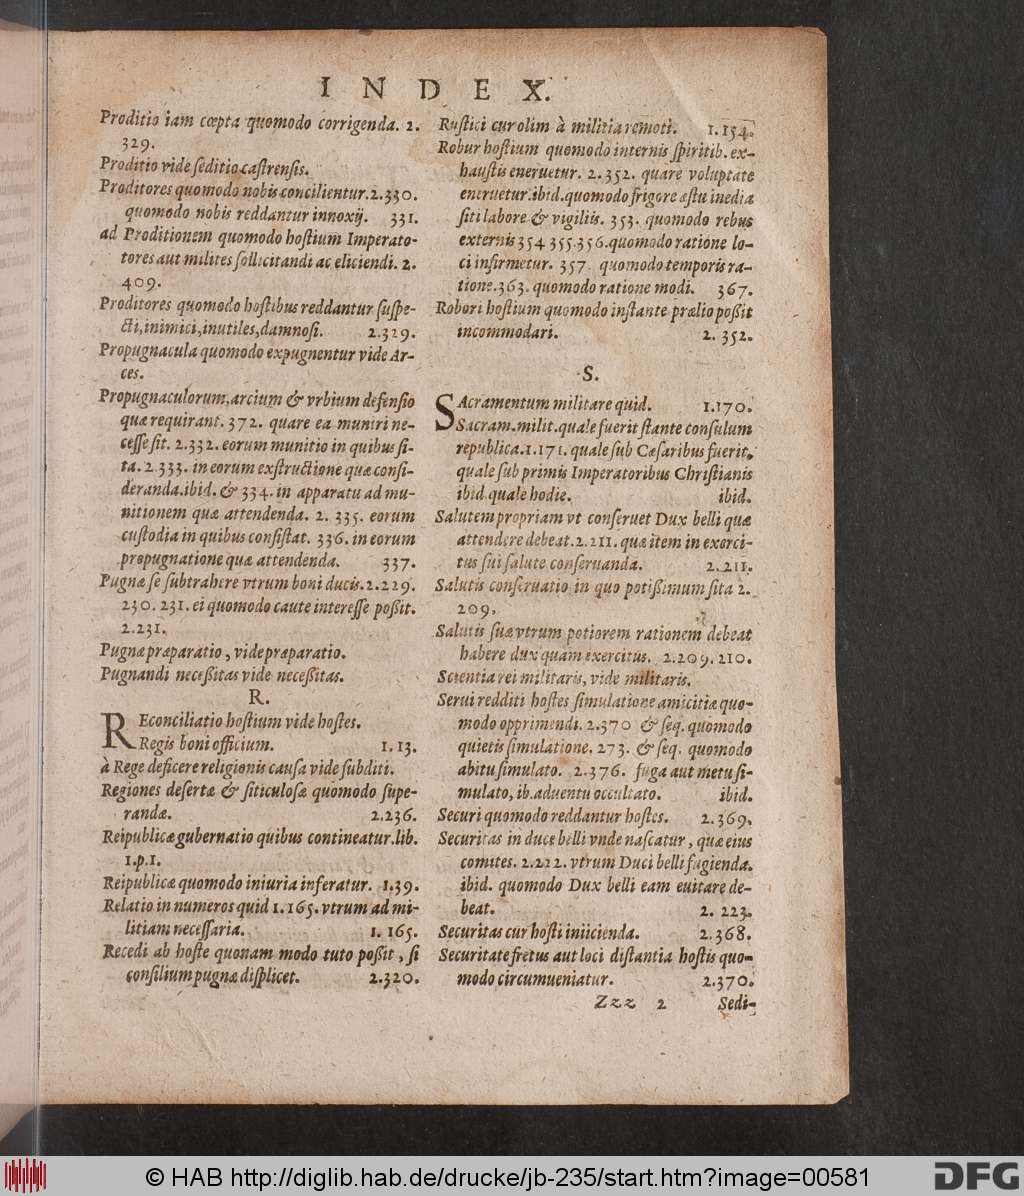 INDEX.
Proditio iam cœpta quomodo corrigenda. 2.
329.
Proditio vide ſeditio caſtrenſis.
Proditores quomodo nobis concilientur. 2.330.
quomodo nobis reddantur innoxij. 331.
ad Proditionem quomodo hoſtium Imperato-
tores aut milites ſollicitandi ac eliciendi. 2.
409.
Proditores quomodo hoſtibus reddantur ſuſpe-
cti, inimici, inutiles, damnoſi. 2.329.
Propugnacula quomodo expugnentur vide Ar-
ces.
Propugnaculorum, arcium & vrbium defenſio
quæ requirant. 372. quare ea muniri ne-
ceſſe ſit. 2.332. eorum munitio in quibus ſi-
ta. 2.333. in eorum exſtructione quæ conſi-
deranda. ibid. & 334. in apparatu ad mu-
nitionem quæ attendenda. 2. 335. eorum
cuſtodia in quibus conſiſtat. 336. in eorum
propugnatione quæ attendenda. 337.
Pugnæ ſe ſubtrahere vtrum boni ducis. 2.229.
230. 231. ei quomodo caute intereſſe poßit.
2.231.
Pugnæ præparatio, vide præparatio.
Pugnandi neceßitas vide neceßitas.
R.
REconciliatio hoſtium vide hoſtes.
Regis boni officium. 1. 13.
à Rege deficere religionis cauſa vide ſubditi.
Regiones deſertæ & ſiticuloſæ quomodo ſupe-
randæ. 2.236.
Reipublicæ gubernatio quibus contineatur. lib.
1.p.1.
Reipublicæ quomodo iniuria inferatur. 1.39.
Relatio in numeros quid 1.165. vtrum ad mi-
litiam neceſſaria. 1. 165.
Recedi ab hoſte quonam modo tuto poßit, ſi
conſilium pugnæ diſplicet. 2.320.
Ruſtici cur olim à militia remoti. 1.154.
Robur hoſtium quomodo internis ſpiritib. ex-
hauſtis eneruetur. 2.352. quare voluptate
eneruetur. ibid. quomodo frigore æſtu inediæ
ſiti labore & vigiliis. 353. quomodo rebus
externis 354 355.356. quomodo ratione lo-
ci infirmetur. 357. quomodo temporis ra-
tione. 363. quomodo ratione modi. 367.
Robori hoſtium quomodo inſtante prælio poßit
incommodari. 2. 352.
S.
SAcramentum militare quid. 1.170.
Sacram. milit. quale fuerit ſtante conſulum
republica. 1.171. quale ſub Cæſaribus fuerit,
quale ſub primis Imperatoribus Chriſtianis
ibid. quale hodie. ibid.
Salutem propriam vt conſeruet Dux belli quæ
attendere debeat. 2.211. quæ item in exerci-
tus ſui ſalute conſeruanda. 2.211.
Salutis conſeruatio in quo potißimum ſita 2.
209.
Salutis ſuæ vtrum potiorem rationem debeat
habere dux quam exercitus. 2.209.210.
Scientia rei militaris, vide militaris.
Serui redditi hoſtes ſimulatione amicitiæ quo-
modo opprimendi. 2.370 & ſeq. quomodo
quietis ſimulatione. 273. & ſeq. quomodo
abitu ſimulato. 2.376. fuga aut metu ſi-
mulato, ib. aduentu occultato. ibid.
Securi quomodo reddantur hoſtes. 2.369.
Securitas in duce belli vnde naſcatur, quæ eius
comites. 2.222. vtrum Duci belli fugienda.
ibid. quomodo Dux belli eam euitare de-
beat. 2. 223.
Securitas cur hoſti iniicienda. 2.368.
Securitate fretus aut loci diſtantia hoſtis quo-
modo circumueniatur. 2.370.
Zzz 2 Sedi-
© HAB http://diglib.hab.de/drucke/jb-235/start.htm?image=00581
DFG